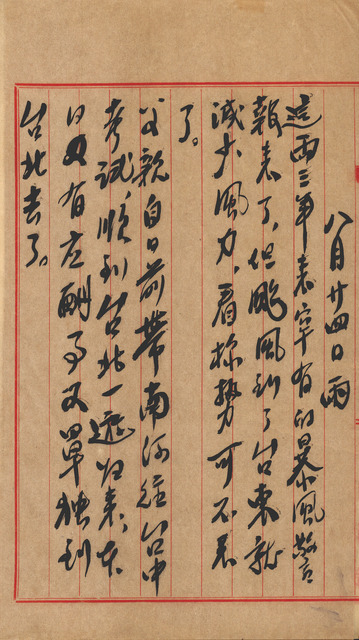 八月廿四日雨
這兩三年來罕有的暴風警
報來了，但颱風到了台東就
減大風力，看樣勢可不來
了。
父親自日前帶南河往台中
考試，順到台北一遊归來，本
日又有应酬事又單独到
台北去了。